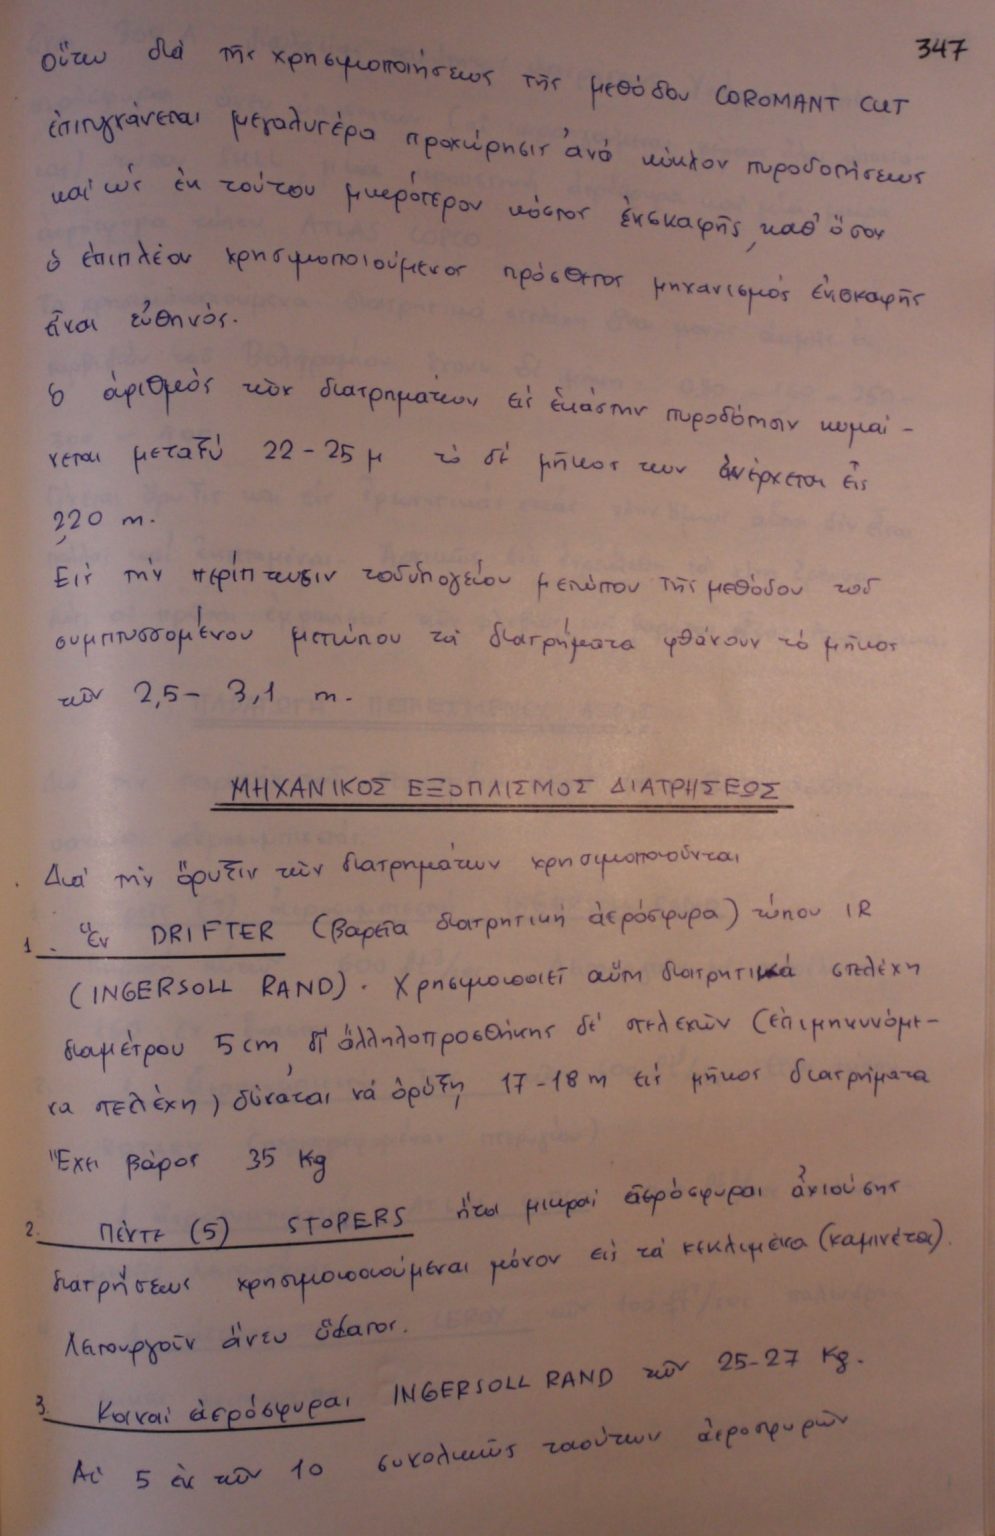 347
Οὕτω διὰ τῆς χρησιμοποιήσεως τῆς μεθόδου COROMANT CUT
ἐπιτυγχάνεται μεγαλυτέρα προχώρησις ἀνά κύκλον πυροδοτήσεως
καί ὡς ἐκ τούτου μικρότερον κόστος ἐκσκαφῆς, καθ' ὅσον
ὁ ἐπιπλέον χρησιμοποιούμενος πρόσθετος μηχανισμός ἐκσκαφῆς
εἶναι εὐθηνός.
Ὁ ἀριθμός τῶν διατρημάτων εἰς ἑκάστην πυροδότησιν κυμαί-
νεται μεταξύ 22-25 μ τὸ δέ μῆκος των ἀνέρχεται εἰς
220 m.
Εἰς τὴν περίπτωσιν τοῦ ὑπογείου μετώπου τῆς μεθόδου τοῦ
συμπτυσσομένου μετώπου τὰ διατρήματα φθάνουν τὸ μῆκος
τῶν 2,5- 3,1 m.
ΜΗΧΑΝΙΚΟΣ ΕΞΟΠΛΙΣΜΟΣ ΔΙΑΤΡΗΣΕΩΣ
Διά τὴν ὄρυξιν τῶν διατρημάτων χρησιμοποιοῦνται
1. Ἕν DRIFTER (βαρεῖα διατρητική ἀερόσφυρα) τύπου IR
(INGERSOLL RAND). Χρησιμοποιεῖ αὕτη διατρητικά στελέχη
διαμέτρου 5cm, δι' ἀλληλοπροσθήκης δέ στελεχῶν (ἐπιμηκυνόμε-
να στελέχη) δύναται νά ὀρύξῃ 17-18 m εἰς μῆκος διατρήματα
Ἔχει βάρος 35 Kg
2. Πέντε (5) STOPERS ἤτοι μικραί ἀερόσφυραι ἀνιούσης
διατρήσεως χρησιμοποιούμεναι μόνον εἰς τά κεκλιμένα (καμινέτα).
Λειτουργοῦν ἄνευ ὕδατος.
3. Κοιναί ἀερόσφυραι INGERSOLL RAND τῶν 25-27 Kg.
Αἱ 5 ἐκ τῶν 10 συνολικῶς τοιούτων ἀεροσφυρῶν